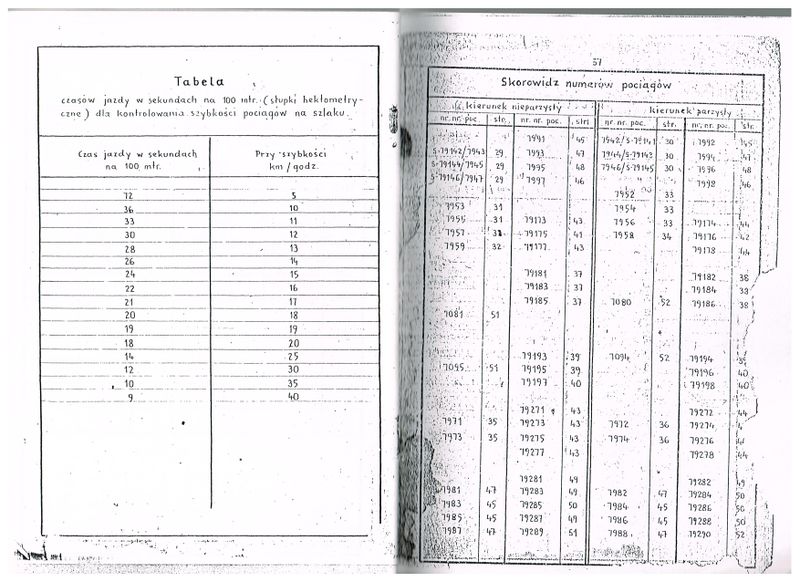 Tabela
czasów jazdy w sekundach na 100 mtr. (słupki hektometry-
czne) dla kontrolowania szybkości pociągów na szlaku.
Czas jazdy w sekundach Przy szybkości
na 100 mtr. km/godz.
72 5
36 10
33 11
30 12
28 13
26 14
24 15
22 16
21 17
20 18
19 19
18 20
14 25
12 30
10 35
9 40
57
Skorowidz numerów pociągów
kierunek nieparzysty kierunek parzysty
nr. nr. poc. str. nr. nr. poc. str. nr. nr. poc. str. nr. nr. poc. str.
7991 45 7942/S-79141 30 7992 45
S-79142/7943 29 7993 47 7944/S-79143 30 7994 47
S-79144/7945 29 7995 48 7946/S-79145 30 7996 48
S-79146/7947 29 7997 46 7998 46
7952 33
7953 31 7954 33
7955 31 79173 43 7956 33 79174 44
7957 79175 41 7958 34 79176 42
7959 32 79177 43 79178 44
79181 37 79182 38
79183 37 79184 38
79185 37 7080 52 79186 38
7081 51
79193 39 7094 52 79194
7095 51 79195 39 79196 40
79197 40 79198 40
79271 43 79272 44
7971 35 79273 43 7972 36 79274
7973 35 79275 43 7974 36 79276
79277 43 79278 44
79281 49 79282 49
7981 47 79283 49 7982 47 79284 50
7983 45 79285 50 7984 45 79286 50
7985 45 79287 49 7986 45 79288 50
7987 47 79289 51 7988 47 79290 52